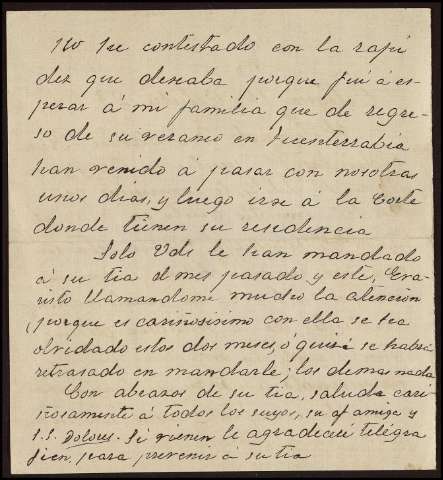 no he contestado con la rapi
dez que deseaba porque fuí á es-
perar á mi familia que de regre-
so de su veraneo en Fuenterrabia
han venido á pasar con nosotras
unos dias, y luego irse á la Corte
donde tienen su residencia
Solo Vds le han mandado
á su tia el mes pasado y este, Eva-
risto llamandome mucho la atencion
porque es cariñosisimo con ella se ha
olvidado estos dos meses, ó quizá se habrá
retrasado en mandarle; los demas nada
Con abrazos de su tia, saluda cari
ñosamente á todos los suyos, su af amiga y
S.S. Dolores. Si vienen le agradeceré telegra
fien para prevenir á su tia